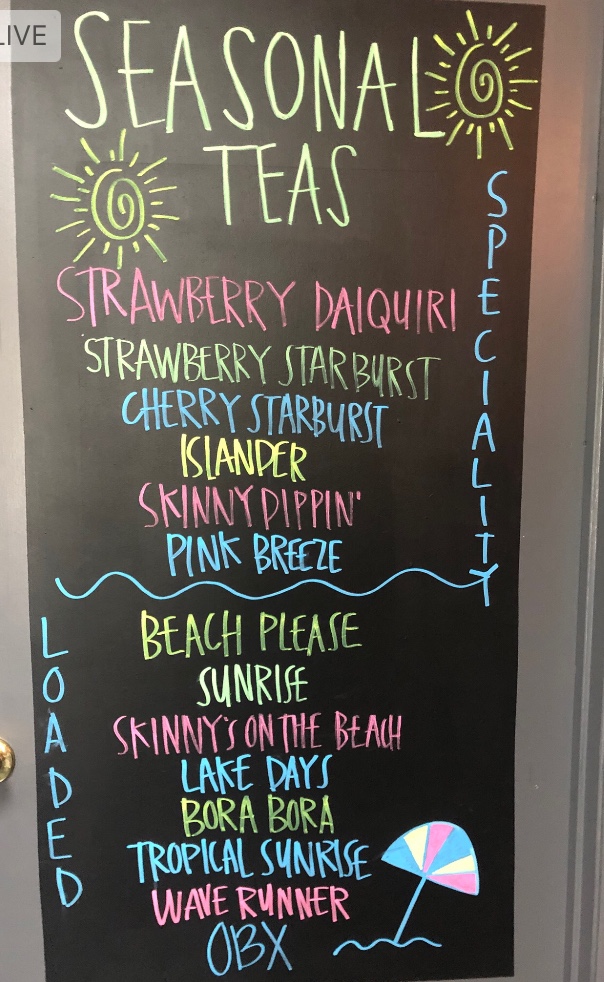 LIVE
SEASONAL
TEAS
SPECIALITY
STRAWBERRY DAIQUIRI
STRAWBERRY STARBURST
CHERRY STARBURST
ISLANDER
SKINNY DIPPIN'
PINK BREEZE
LOADED
BEACH PLEASE
SUNRISE
SKINNY'S ON THE BEACH
LAKE DAYS
BORA BORA
TROPICAL SUNRISE
WAVE RUNNER
OBX